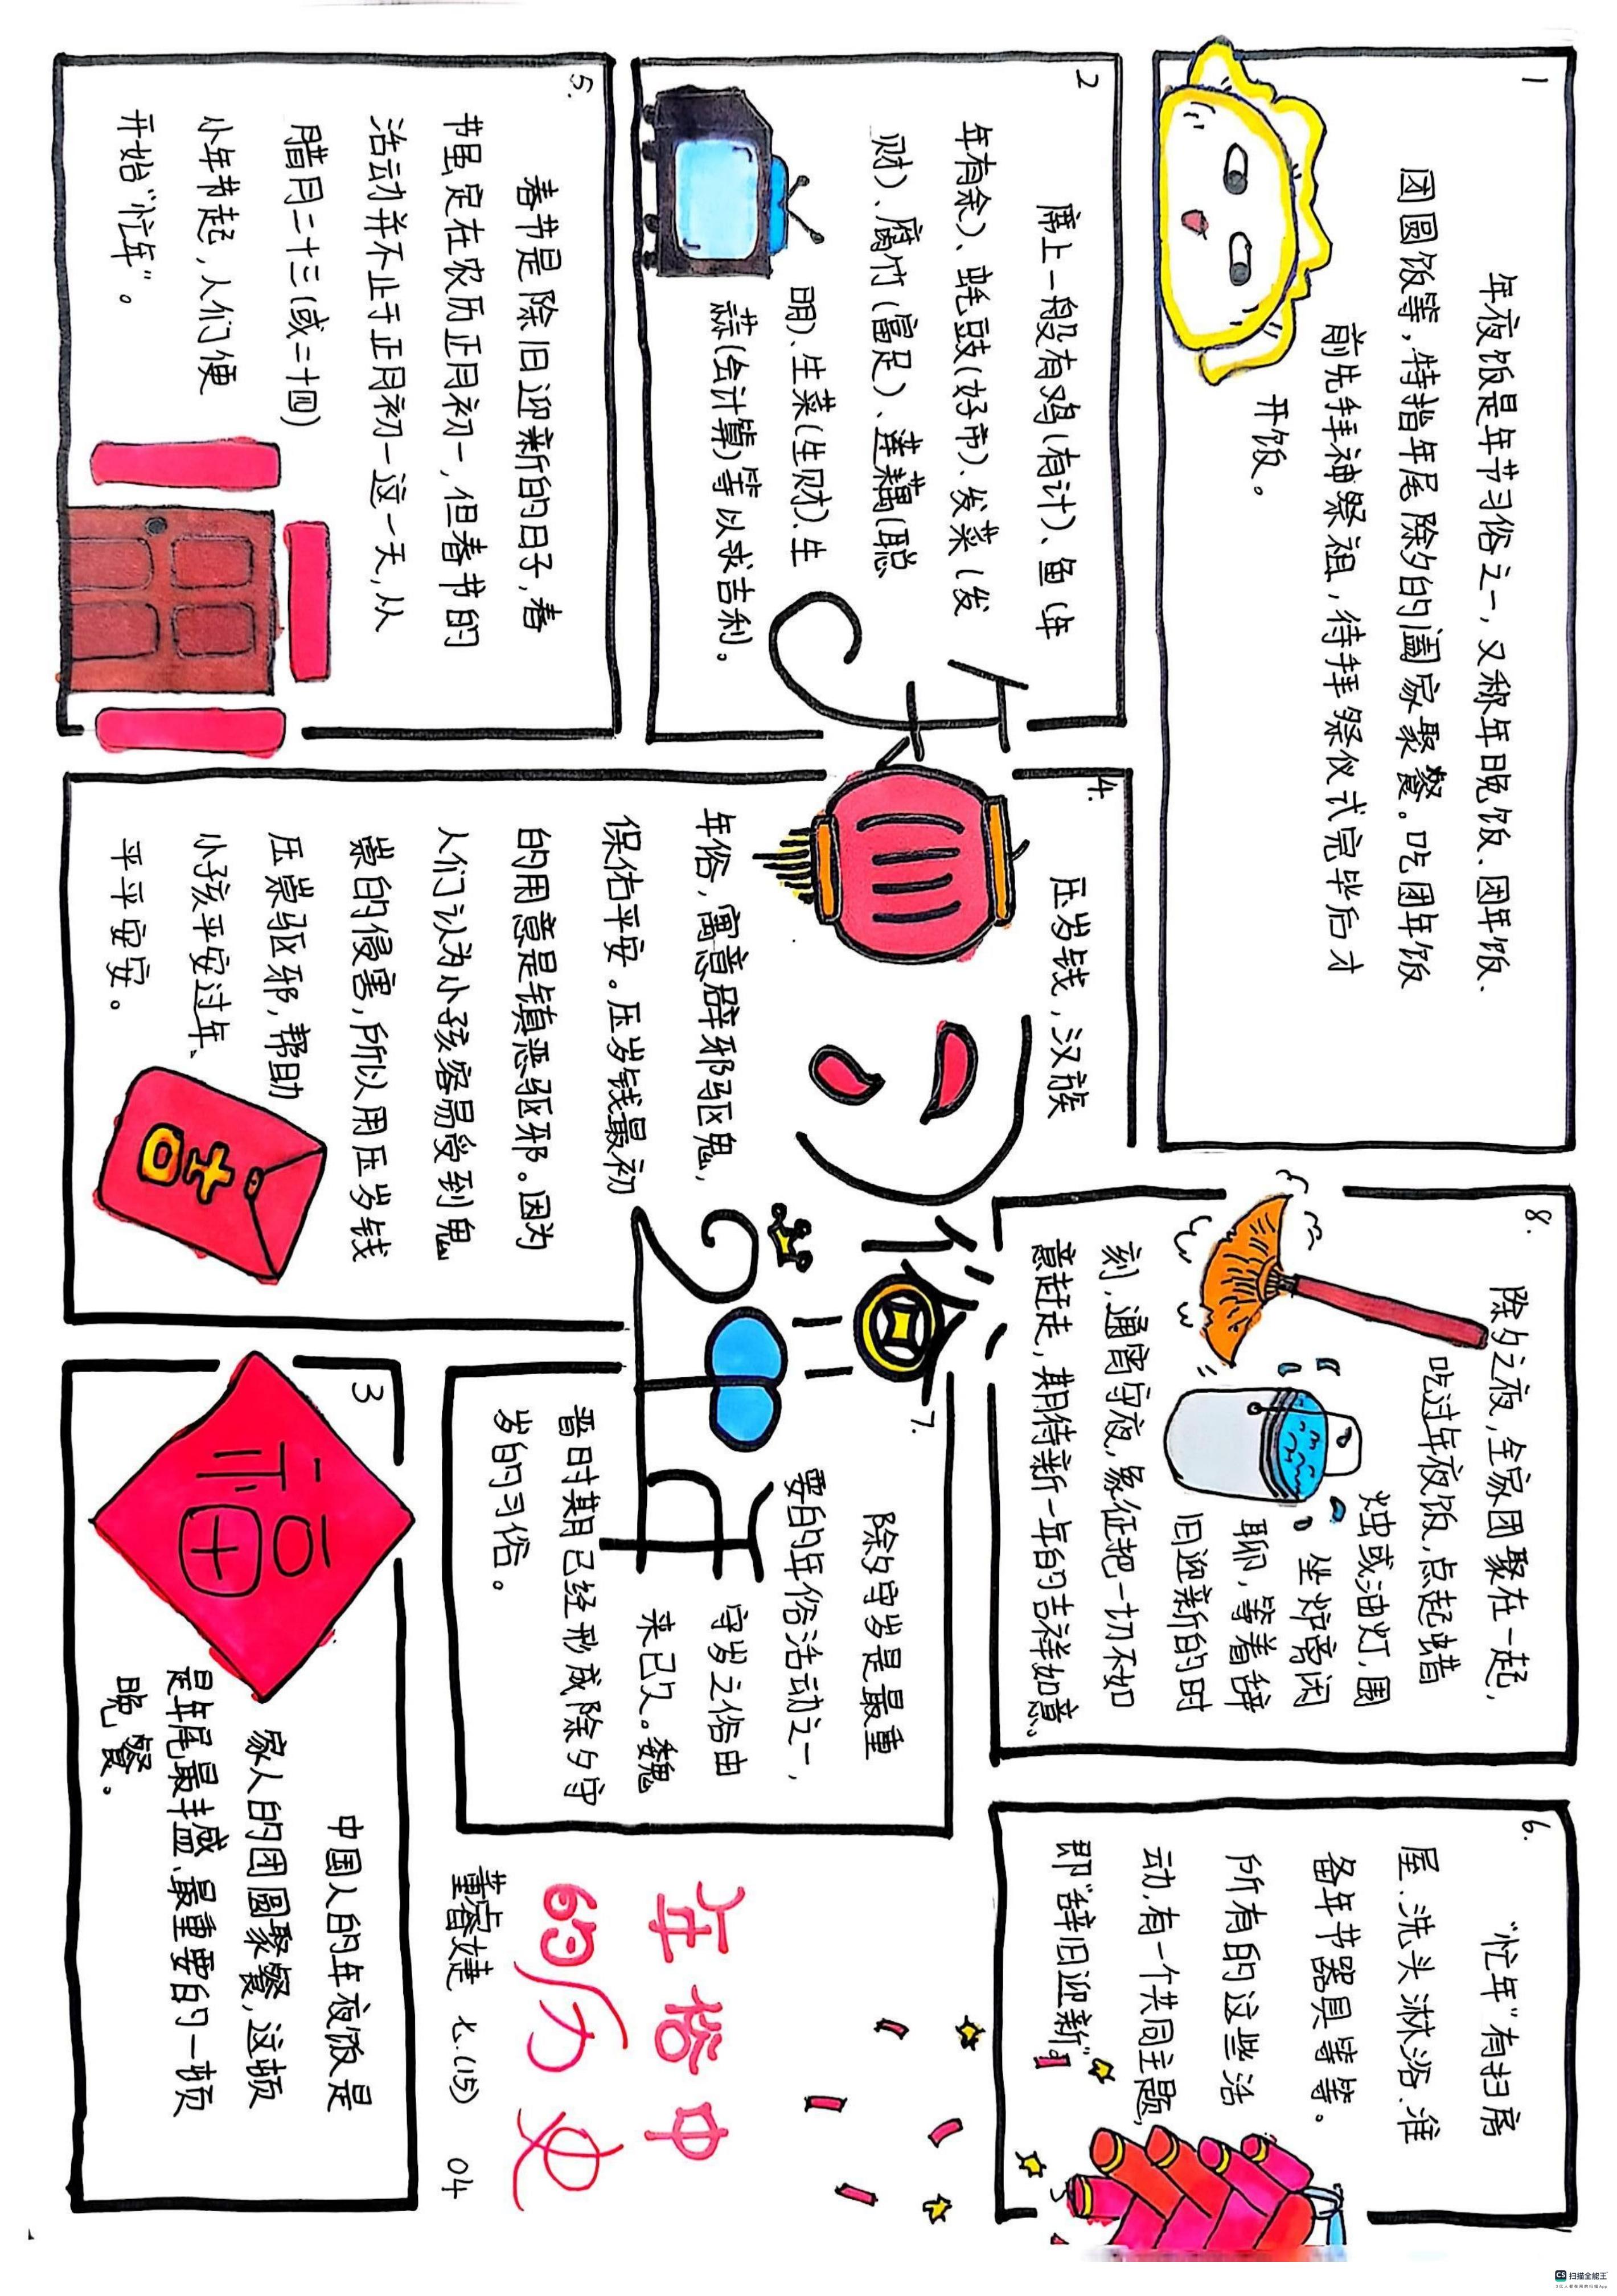 1
年夜饭是年节习俗之一,又称年晚饭、团年饭、
团圆饭等,特指年尾除夕的阖家聚餐。吃团年饭
前先拜神祭祖,待拜祭仪式完毕后才
开饭。
8.
除夕之夜,全家团聚在一起,
吃过年夜饭,点起蜡
烛或油灯,围
坐炉旁闲
聊,等着辞
旧迎新的时
刻,通宵守夜,象征把一切不如
意赶走,期待新一年的吉祥如意。
6.
“忙年”有扫房
屋、洗头沐浴、准
备年节器具等等。
所有的这些活
动,有一个共同主题,
即“辞旧迎新”
2
席上一般有鸡(有计)、鱼(年
年有余)、蚝豉(好市)、发菜(发
财)、腐竹(富足)、莲藕(聪
明)、生菜(生财)、生
蒜(会计算)等以求吉利。
4.
压岁钱,汉族
年俗,寓意辟邪驱鬼,
保佑平安。压岁钱最初
的用意是镇恶驱邪。因为
人们认为小孩容易受到鬼
祟的侵害,所以用压岁钱
压祟驱邪,帮助
小孩平安过年、
平平安安。
吉
7.
除夕守岁是最重
要的年俗活动之一,
守岁之俗由
来已久。魏
晋时期已经形成除夕守
岁的习俗。
年俗中
的历史
董睿婕 七.(15) 04
5.
春节是除旧迎新的日子,春
节虽定在农历正月初一,但春节的
活动并不止于正月初一这一天,从
腊月二十三(或二十四)
小年节起,人们便
开始“忙年”。
3
福
中国人的年夜饭是
家人的团圆聚餐,这顿
是年尾最丰盛、最重要的一顿
晚餐。
CS 扫描全能王